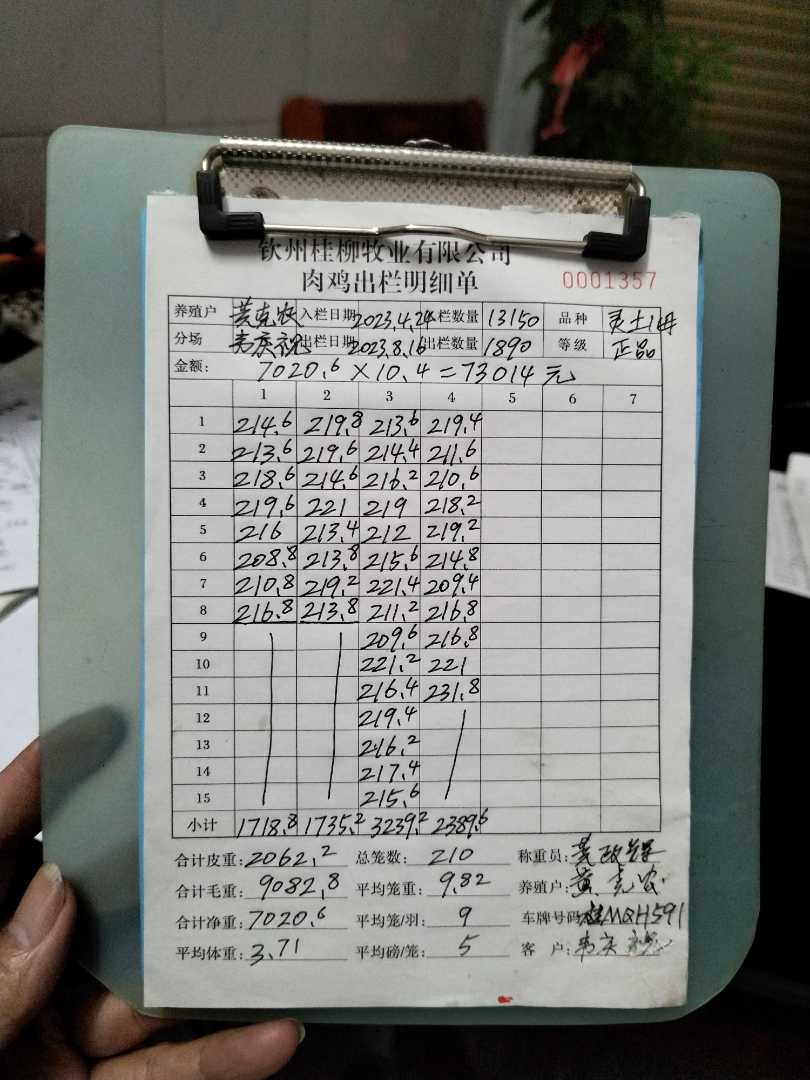 钦州桂柳牧业有限公司
肉鸡出栏明细单 0001357
养殖户 黄克农 入栏日期 2023.4.24 栏数量 13150 品种 灵土1号
分场 韦庆祝 出栏日期 2023.8.16 出栏数量 1890 等级 正品
金额: 7020.6×10.4=73014元
1 2 3 4 5 6 7
1 214.6 219.8 213.6 219.4
2 213.6 219.6 214.4 211.6
3 218.6 214.6 216.2 210.6
4 219.6 221 219 218.2
5 216 213.4 212 219.2
6 208.8 213.8 215.6 214.8
7 210.8 219.2 221.4 209.4
8 216.8 213.8 211.2 216.8
9 209.6 216.8
10 221.2 221
11 216.4 231.8
12 219.4
13 216.2
14 217.4
15 215.6
小计 1718.8 1735.2 3239.2 2389.6
合计皮重: 2062.2 总笼数: 210 称重员: 黄
合计毛重: 9082.8 平均笼重: 9.82 养殖户: 黄克农
合计净重: 7020.6 平均笼/羽: 9 车牌号码 桂MQH591
平均体重: 3.71 平均磅/笼: 5 客户: